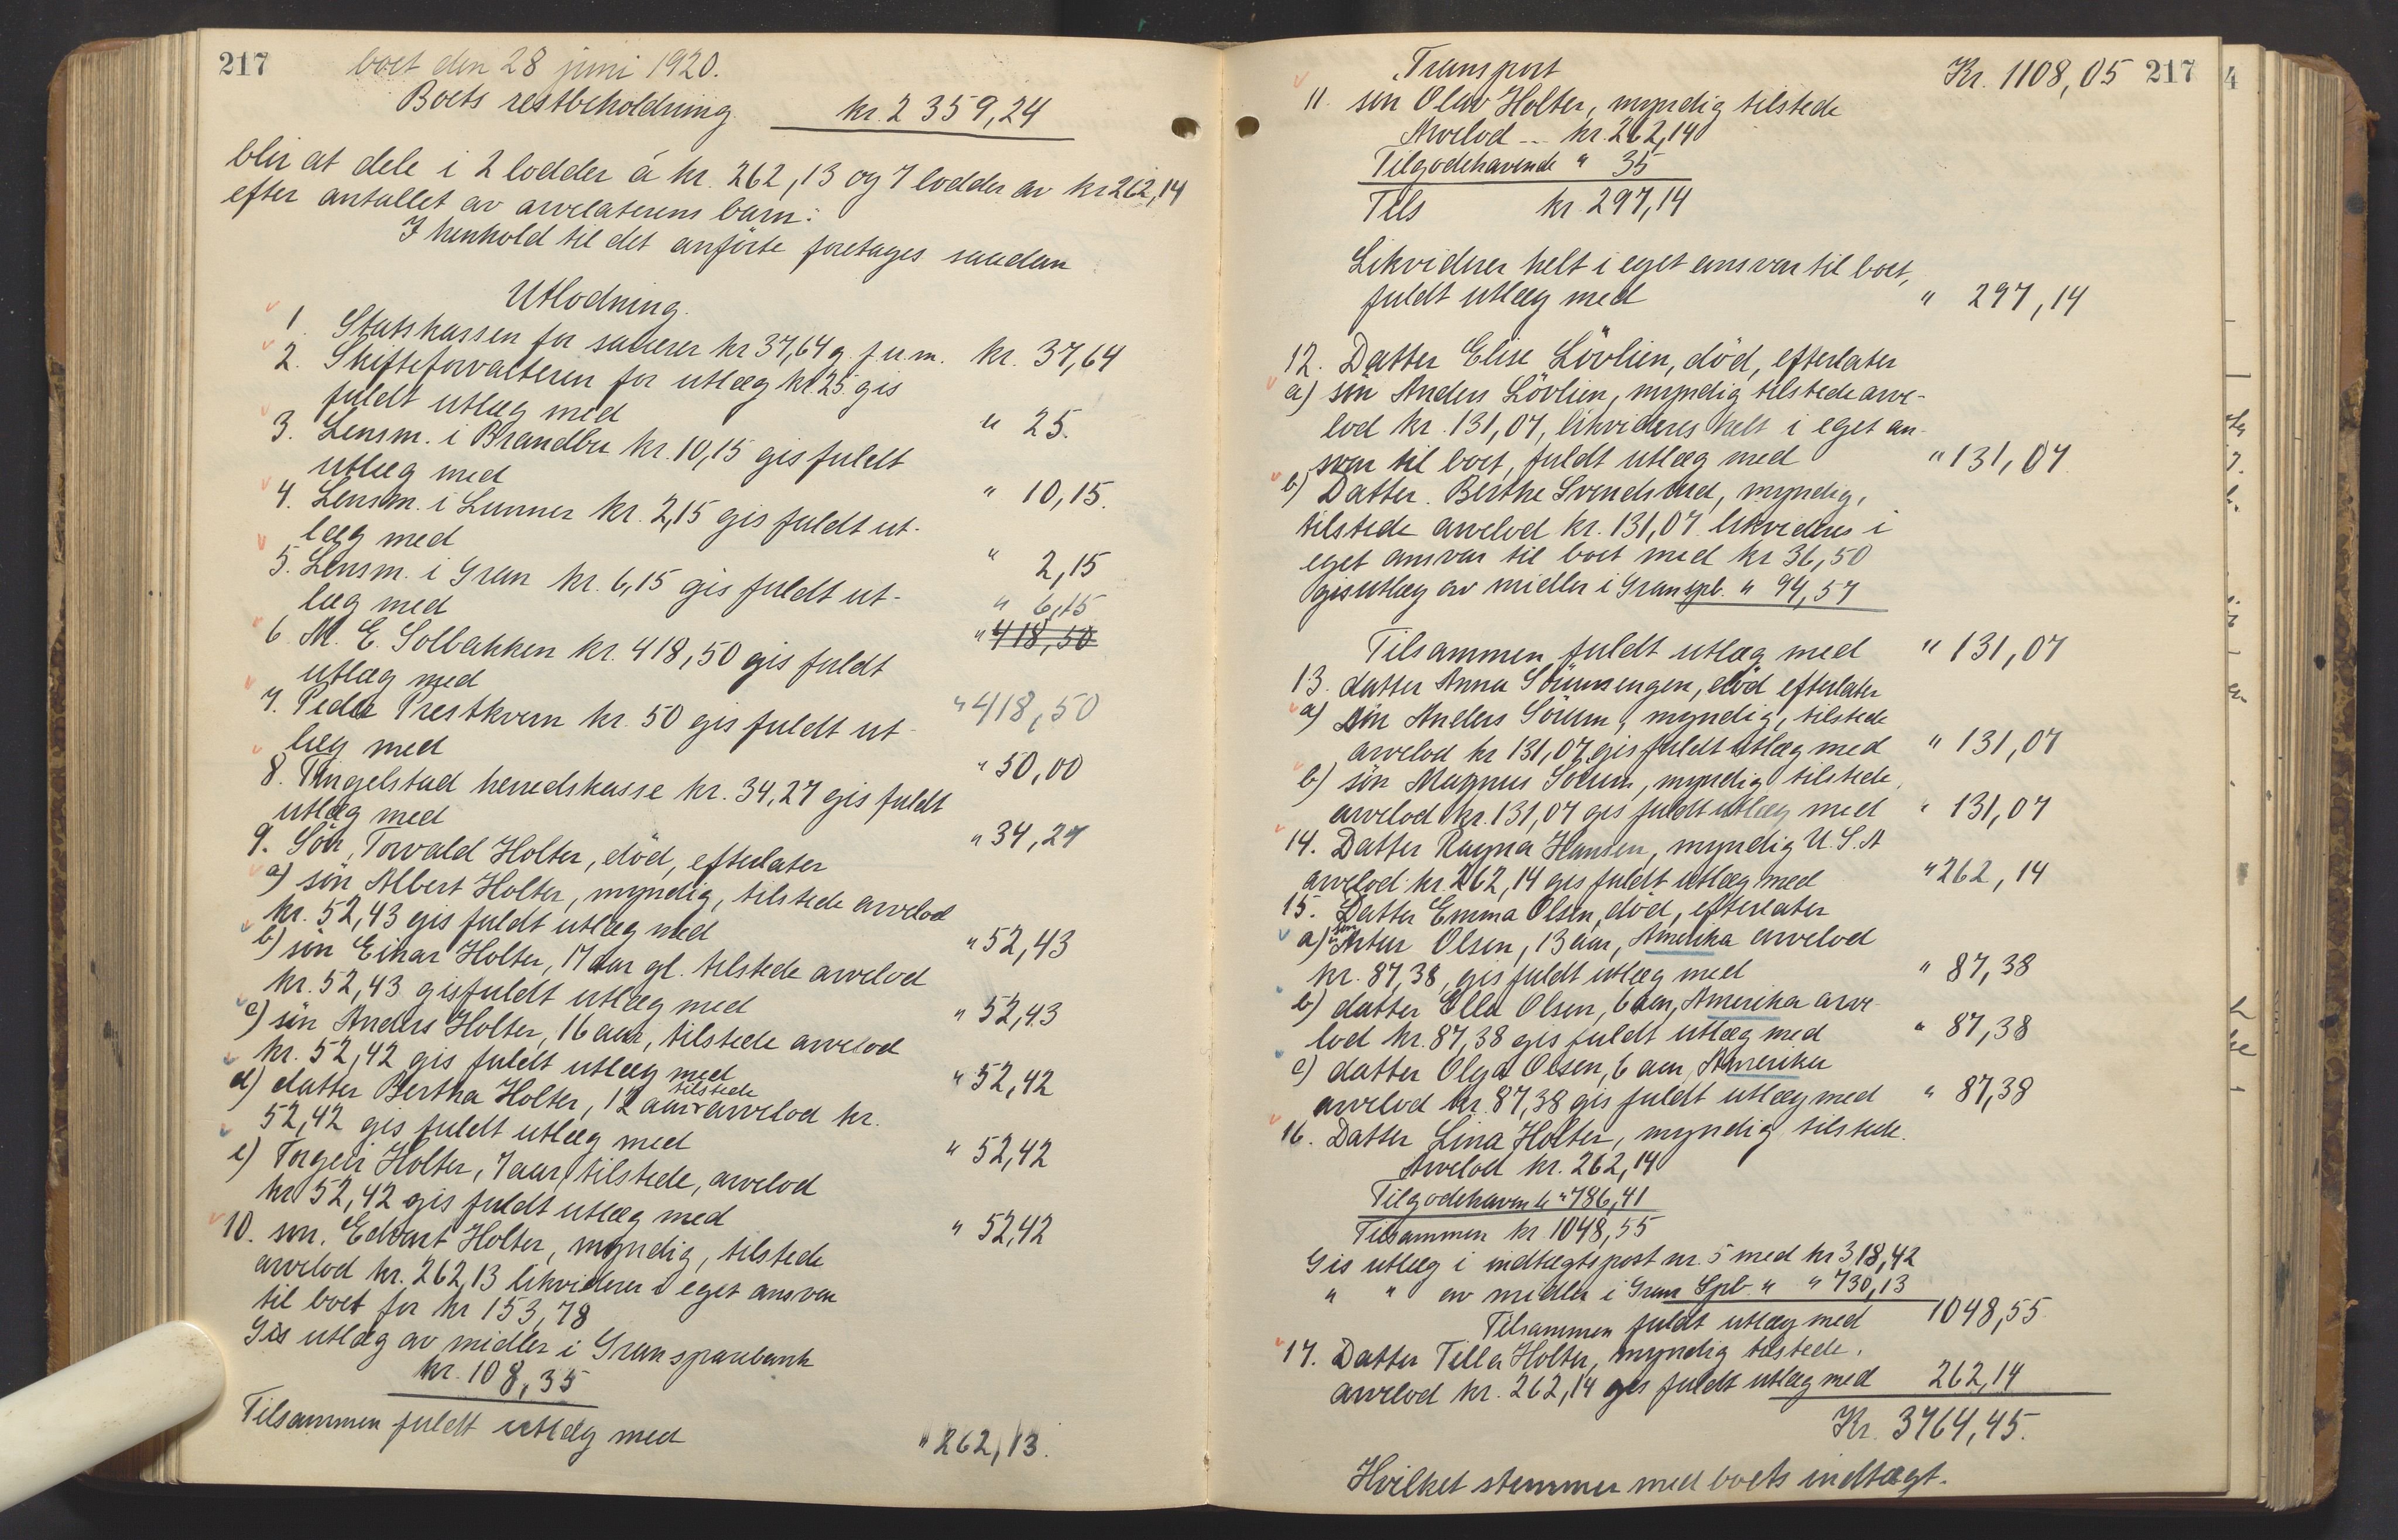 217
boet den 28 juni 1920.
Boets restbeholdning kr. 2 359,24
blir at dele i 2 lodder á kr. 262,13 og 7 lodder av kr 262,14
efter antallet av arvelaterens barn.
I henhold til det anförte foretages saadan
Utlodning.
1. Statskassen for salærer kr 37,64 g. f. u. m. kr. 37,64
2. Skifteforvalteren for utlæg kr 25 gis
fuldt utlæg med " 25.
3. Lensm. i Brandbu kr. 10,15 gis fuldt
utlæg med " 10,15.
4. Lensm. i Lunner kr. 2,15 gis fuldt ut-
læg med " 2,15
5. Lensm. i Gran kr. 6,15 gis fuldt ut-
læg med " 6,15
" 418,50
6. M. E. Solbakken kr. 418,50 gis fuldt
utlæg med " 418,50
7. Peder Prestkvern kr. 50 gis fuldt ut-
læg med " 50,00
8. Tingelstad herredskasse kr. 34,27 gis fuldt
utlæg med " 34,27
9. Sön, Torvald Holter, död, efterlater
a) sön Albert Holter, myndig, tilstede arvelod
kr. 52,43 gis fuldt utlæg med " 52,43
b) sön Einar Holter, 17 aar gl. tilstede arvelod
kr. 52,43 gis fuldt utlæg med " 52,43
c) sön Anders Holter, 16 aar, tilstede arvelod
kr. 52,42 gis fuldt utlæg med " 52,42
d) datter Bertha Holter, 12 aar tilstede arvelod kr.
52,42 gis fuldt utlæg med " 52,42
e) Torgeir Holter, 7 aar, tilstede, arvelod
kr 52,42 gis fuldt utlæg med " 52,42
10. sön. Edvart Holter, myndig, tilstede
arvelod kr. 262,13 likviderer i eget ansvar
til boet for kr 153,78
Gis utlæg av midler i Gran sparebank
kr. 108,35
Tilsammen fuldt utlæg med " 262,13.
Transport Kr. 1108,05 217
11. sön Olav Holter, myndig tilstede
Arvelod -- kr. 262,14
Tilgodehavende " 35
Tils kr. 297,14
Likviderer helt i eget ansvar til boet,
fuldt utlæg med " 297,14
12. Datter Elise Lövlien, död, efterlater
a) sön Anders Lövlien, myndig tilstede arve-
lod kr. 131,07, likvideres helt i eget an-
svar til boet, fuldt utlæg med " 131,07
b) Datter. Berthe Svendsrud, myndig,
tilstede arvelod kr. 131,07 likvideres i
eget ansvar til boet med kr 36,50
gis utlæg av midler i Gran spb. " 94,57
Tilsammen fuldt utlæg med " 131,07
13. datter Anna Sörumsengen, död efterlater
a) sön Anders Sörum, myndig, tilstede
arvelod kr 131,07 gis fuldt utlæg med " 131,07
b) sön Magnus Sörum, myndig tilstede,
arvelod kr. 131,07 gis fuldt utlæg med " 131,07
14. Datter Ragna Hansen, myndig U. S. A
arvelod kr. 262,14 gis fuldt utlæg med " 262,14
15. Datter Emma Olsen, död, efterlater
a) sön Artur Olsen, 13 aar, Amerika arvelod
kr. 87,38, gis fuldt utlæg med " 87,38
b) datter Ella Olsen, 6 aar, Amerika arve-
lod kr. 87,38 gis fuldt utlæg med " 87,38
c) datter Olga Olsen, 6 aar, Amerika
arvelod kr. 87,38 gis fuldt utlæg med " 87,38
16. Datter Lina Holter, myndig tilstede.
Arvelod kr. 262,14
Tilgodehavende " 786,41
Tilsammen kr 1048,55
Gis utlæg i indtægtspost nr. 5 med kr 318,42
" " av midler i Gran Spb. " " 730,13
Tilsammen fuldt utlæg med 1048,55
17. Datter Tella Holter, myndig tilstede.
arvelod kr. 262,14 gis fuldt utlæg med 262,14
Kr. 3764,45.
Hvilket stemmer med boets indtægt.